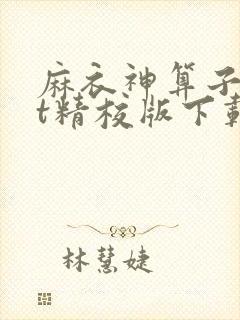 麻衣神算子
t精校版下载
林慧婕